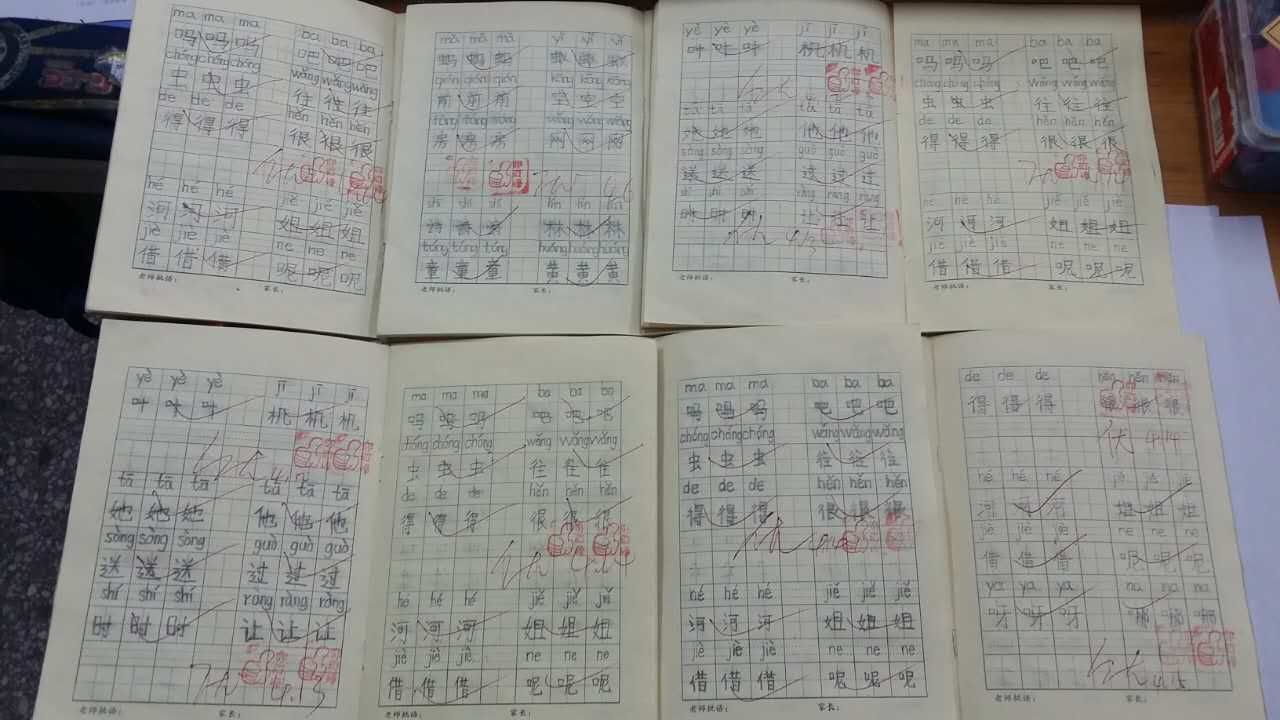 ma ma ma
ba ba ba
吗 吗 吗
吧 吧 吧
chóng chóng chóng
wǎng wǎng wǎng
虫 虫 虫
往 往 往
de de de
hěn hěn hěn
得 得 得
很 很 很
hé hé hé
jiě jiě jiě
河 河 河
姐 姐 姐
jiè jiè jiè
ne ne ne
借 借 借
呢 呢 呢
老师批语: 家长:
mǎ mǎ mǎ
yǐ yǐ yǐ
蚂 蚂 蚂
蚁 蚁 蚁
qián qián qián
kōng kōng kōng
前 前 前
空 空 空
fáng fáng fáng
wǎng wǎng wǎng
房 房 房
网 网 网
shī shī shī
lín lín lín
诗 诗 诗
林 林 林
tóng tóng tóng
huáng huáng huáng
童 童 童
黄 黄 黄
老师批语: 家长:
yè yè yè
jī jī jī
叶 叶 叶
机 机 机
tā tā tā
tā tā tā
她 她 她
他 他 他
sòng sòng sòng
guò guò guò
送 送 送
过 过 过
shí shí shí
ràng ràng ràng
时 时 时
让 让 让
老师批语: 家长:
ma ma ma
ba ba ba
吗 吗 吗
吧 吧 吧
chóng chóng chóng
wǎng wǎng wǎng
虫 虫 虫
往 往 往
de de de
hěn hěn hěn
得 得 得
很 很 很
hé hé hé
jiě jiě jiě
河 河 河
姐 姐 姐
jiè jiè jiè
ne ne ne
借 借 借
呢 呢 呢
老师批语: 家长:
yè yè yè
jī jī jī
叶 叶 叶
机 机 机
tā tā tā
tā tā tā
她 她 她
他 他 他
sòng sòng sòng
guò guò guò
送 送 送
过 过 过
shí shí shí
ràng ràng ràng
时 时 时
让 让 让
老师批语: 家长:
ma ma ma
ba ba ba
吗 吗 吗
吧 吧 吧
chóng chóng chóng
wǎng wǎng wǎng
虫 虫 虫
往 往 往
de de de
hěn hěn hěn
得 得 得
很 很 很
hé hé hé
jiě jiě jiě
河 河 河
姐 姐 姐
jiè jiè jiè
ne ne ne
借 借 借
呢 呢 呢
老师批语: 家长:
ma ma ma
ba ba ba
吗 吗 吗
吧 吧 吧
chóng chóng chóng
wǎng wǎng wǎng
虫 虫 虫
往 往 往
de de de
hěn hěn hěn
得 得 得
很 很 很
hé hé hé
jiě jiě jiě
河 河 河
姐 姐 姐
jiè jiè jiè
ne ne ne
借 借 借
呢 呢 呢
老师批语: 家长:
de de de
hěn hěn hěn
得 得 得
很 很 很
优 4.14
hé hé hé
jiě jiě jiě
河 河 河
姐 姐 姐
jiè jiè jiè
ne ne ne
借 借 借
呢 呢 呢
ya ya ya
na na na
呀 呀 呀
哪 哪 哪
4.15
老师批语: 家长: